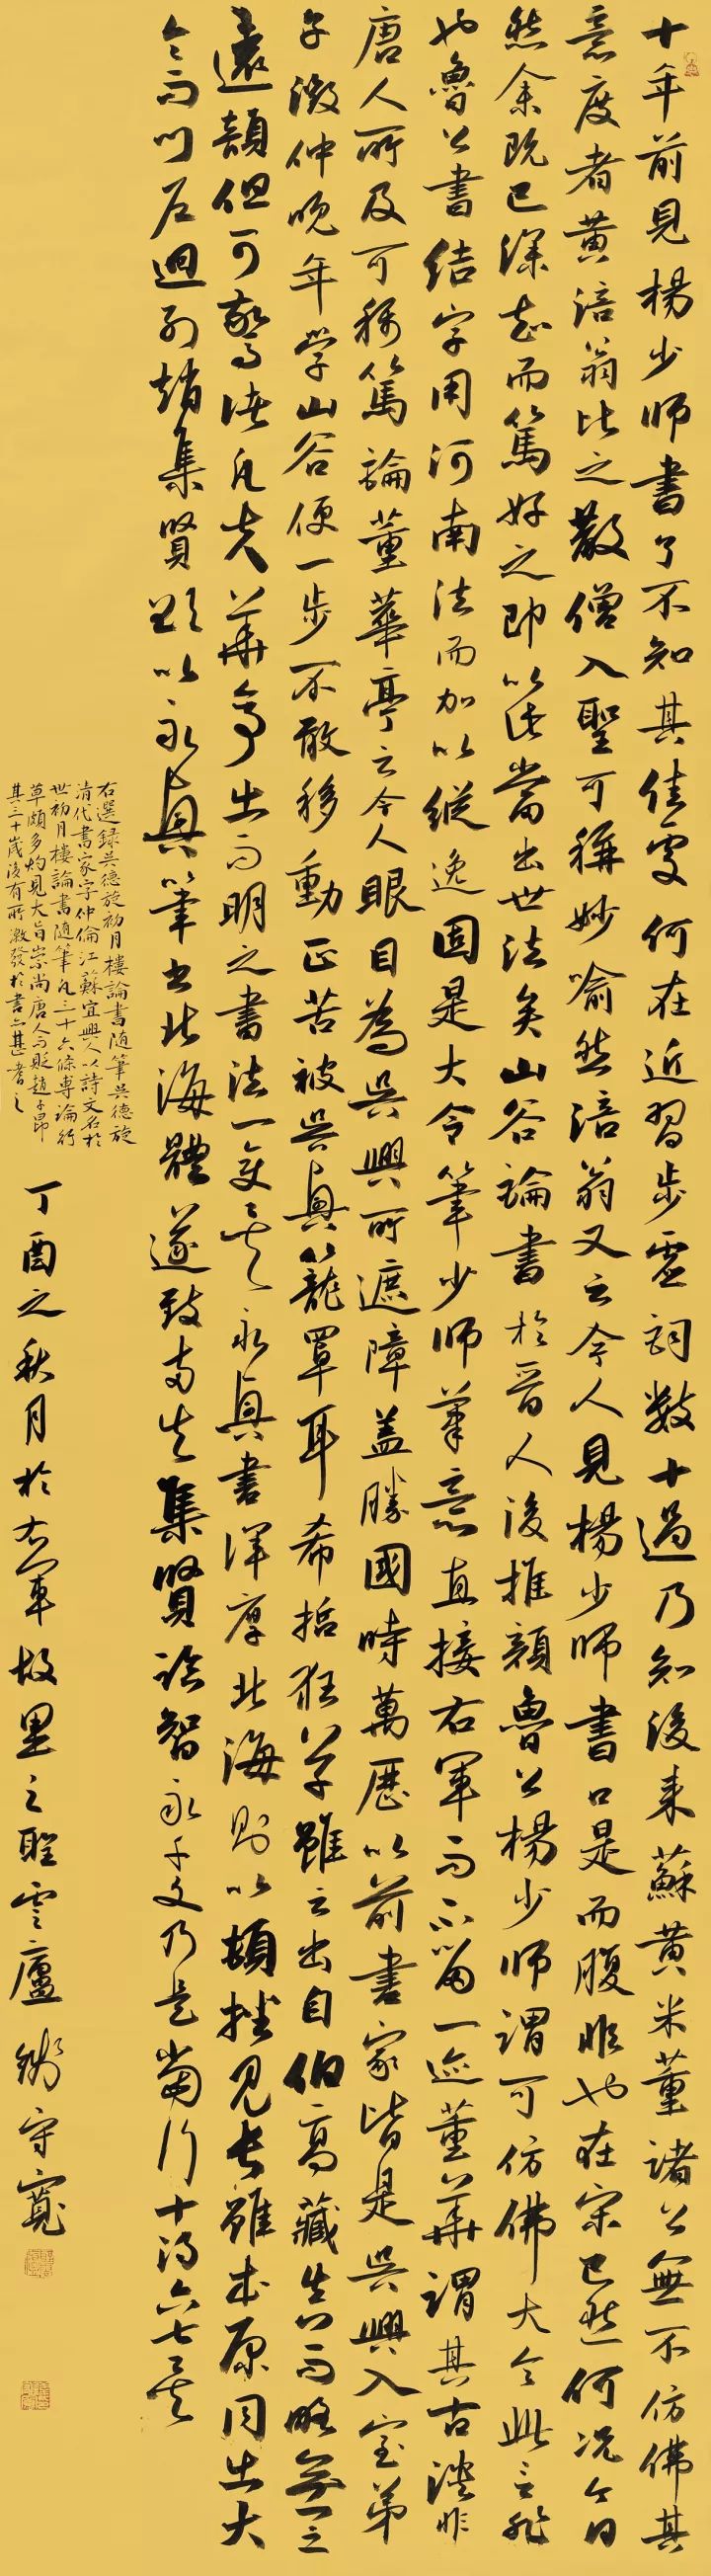 十年前見楊少師書了不知其佳處何在近習步虛詞數十過乃知後来蘇黃米董諸公無不仿佛其
意度者黃涪翁比之散僧入聖可稱妙喻然涪翁又云今人見楊少師書口是而腹非也在宋已然何况今日
然余既已深知而篤好之即以此當出世法矣山谷論書於晉人後推顏魯公楊少师謂可仿佛大令此言非
也魯公書結字用河南法而加以縱逸固是大令筆少师筆意直接右軍而不留一迹董華謂其古淡非
唐人所及可稱篤論董華亭云今人眼目為吳興所遮障蓋勝國時萬歷以前書家皆是吳興入室弟
子徵仲晚年学山谷便一步不敢移動正苦被吳興籠罩耳希哲狂草雖云出自伯高藏真而略無一之
遠韻但可驚諸凡夫華亭出而明之書法一變矣永興書渾厚北海則以頓挫見長雖本原同出大
令而門户迥列趙集賢欲以永興筆書北海體遂致両失集賢論智永千文乃是當行十得六七矣
右選録吳德旋初月樓論書随筆吳德旋
清代書家字仲倫江蘇宜興人以詩文名於
世初月樓論書随筆凡三十六條專論行
草頗多灼見大旨崇尚唐人而貶趙子昂
其三十歲後有所激發於書亦甚耆之
丁酉之秋月於右軍故里之聖雲廬 守寬